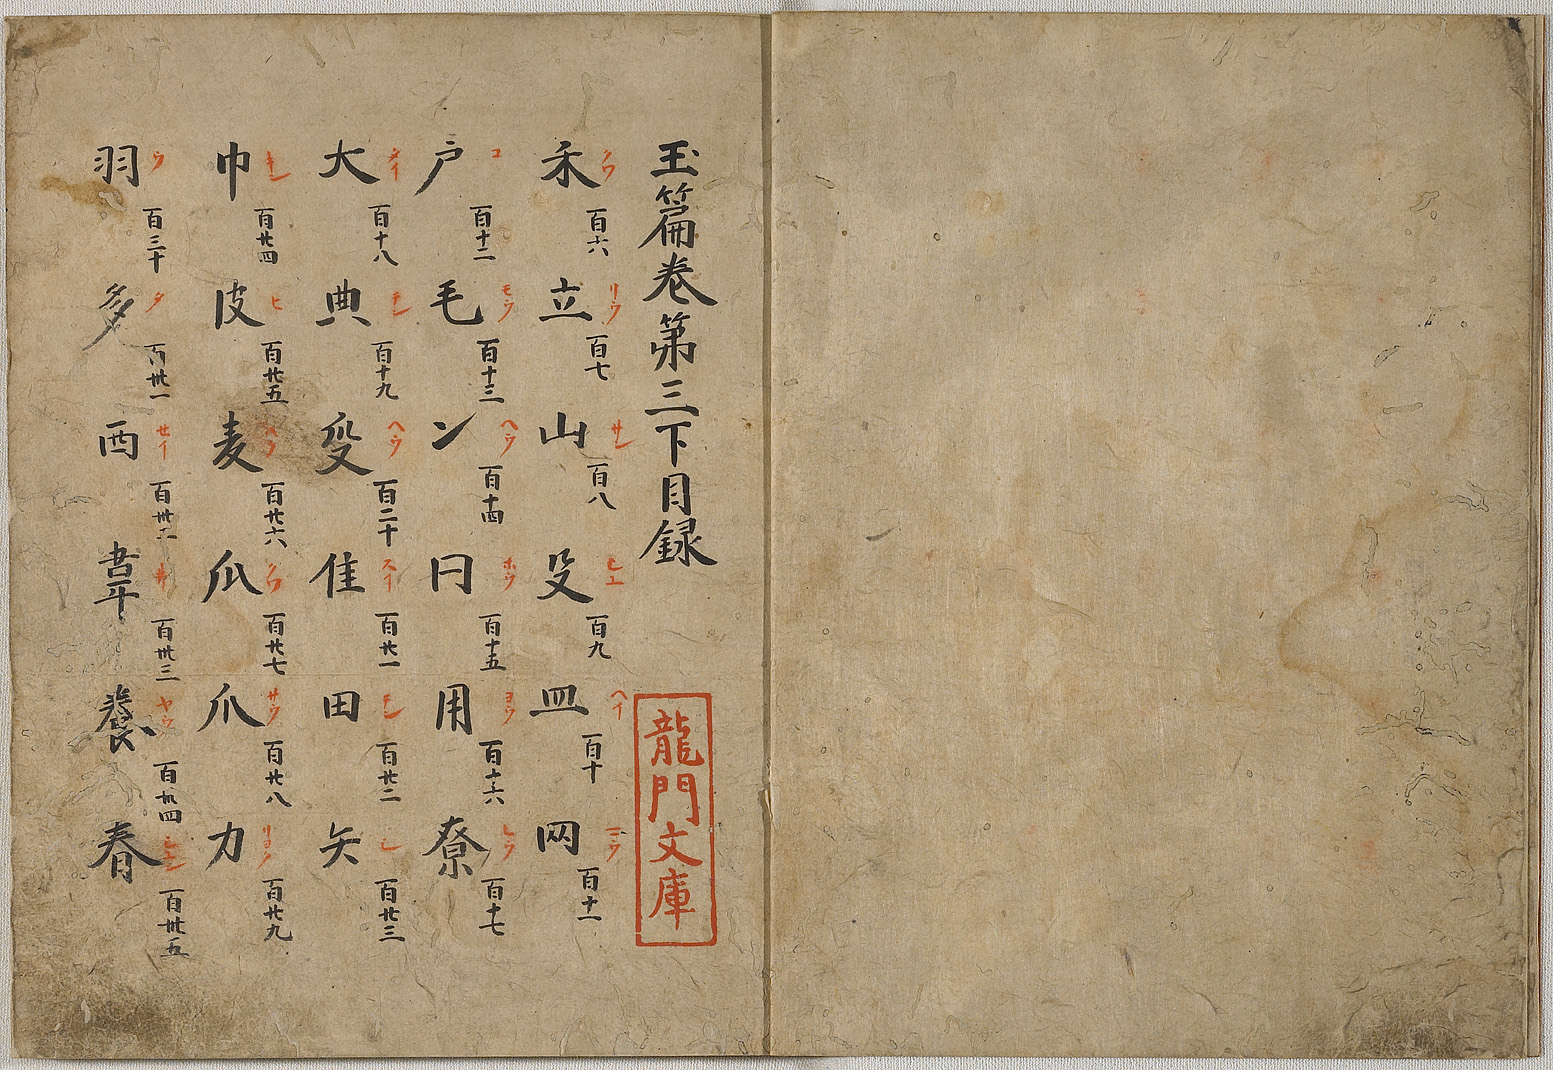 玉篇卷第三下目録
禾 クワ 百六 立 リウ 百七 山 サン 百八 殳 百九 皿 ヘイ 百十 网 百十一
戸 コ 百十二 毛 モウ 百十三 冫 ヘウ 百十四 冃 ホウ 百十五 用 ヨウ 百十六 尞 レウ 百十七
大 タイ 百十八 典 テン 百十九 𠬪 ヘウ 百二十 隹 スイ 百廿一 田 テン 百廿二 矢 シ 百廿三
巾 キン 百廿四 皮 ヒ 百廿五 麦 百廿六 瓜 クワ 百廿七 爪 サウ 百廿八 力 リヨク 百廿九
羽 ウ 百三十 多 タ 百卅一 西 セイ 百卅二 百卅三 養 ヤウ 百卅四 春 百卅五
龍門文庫